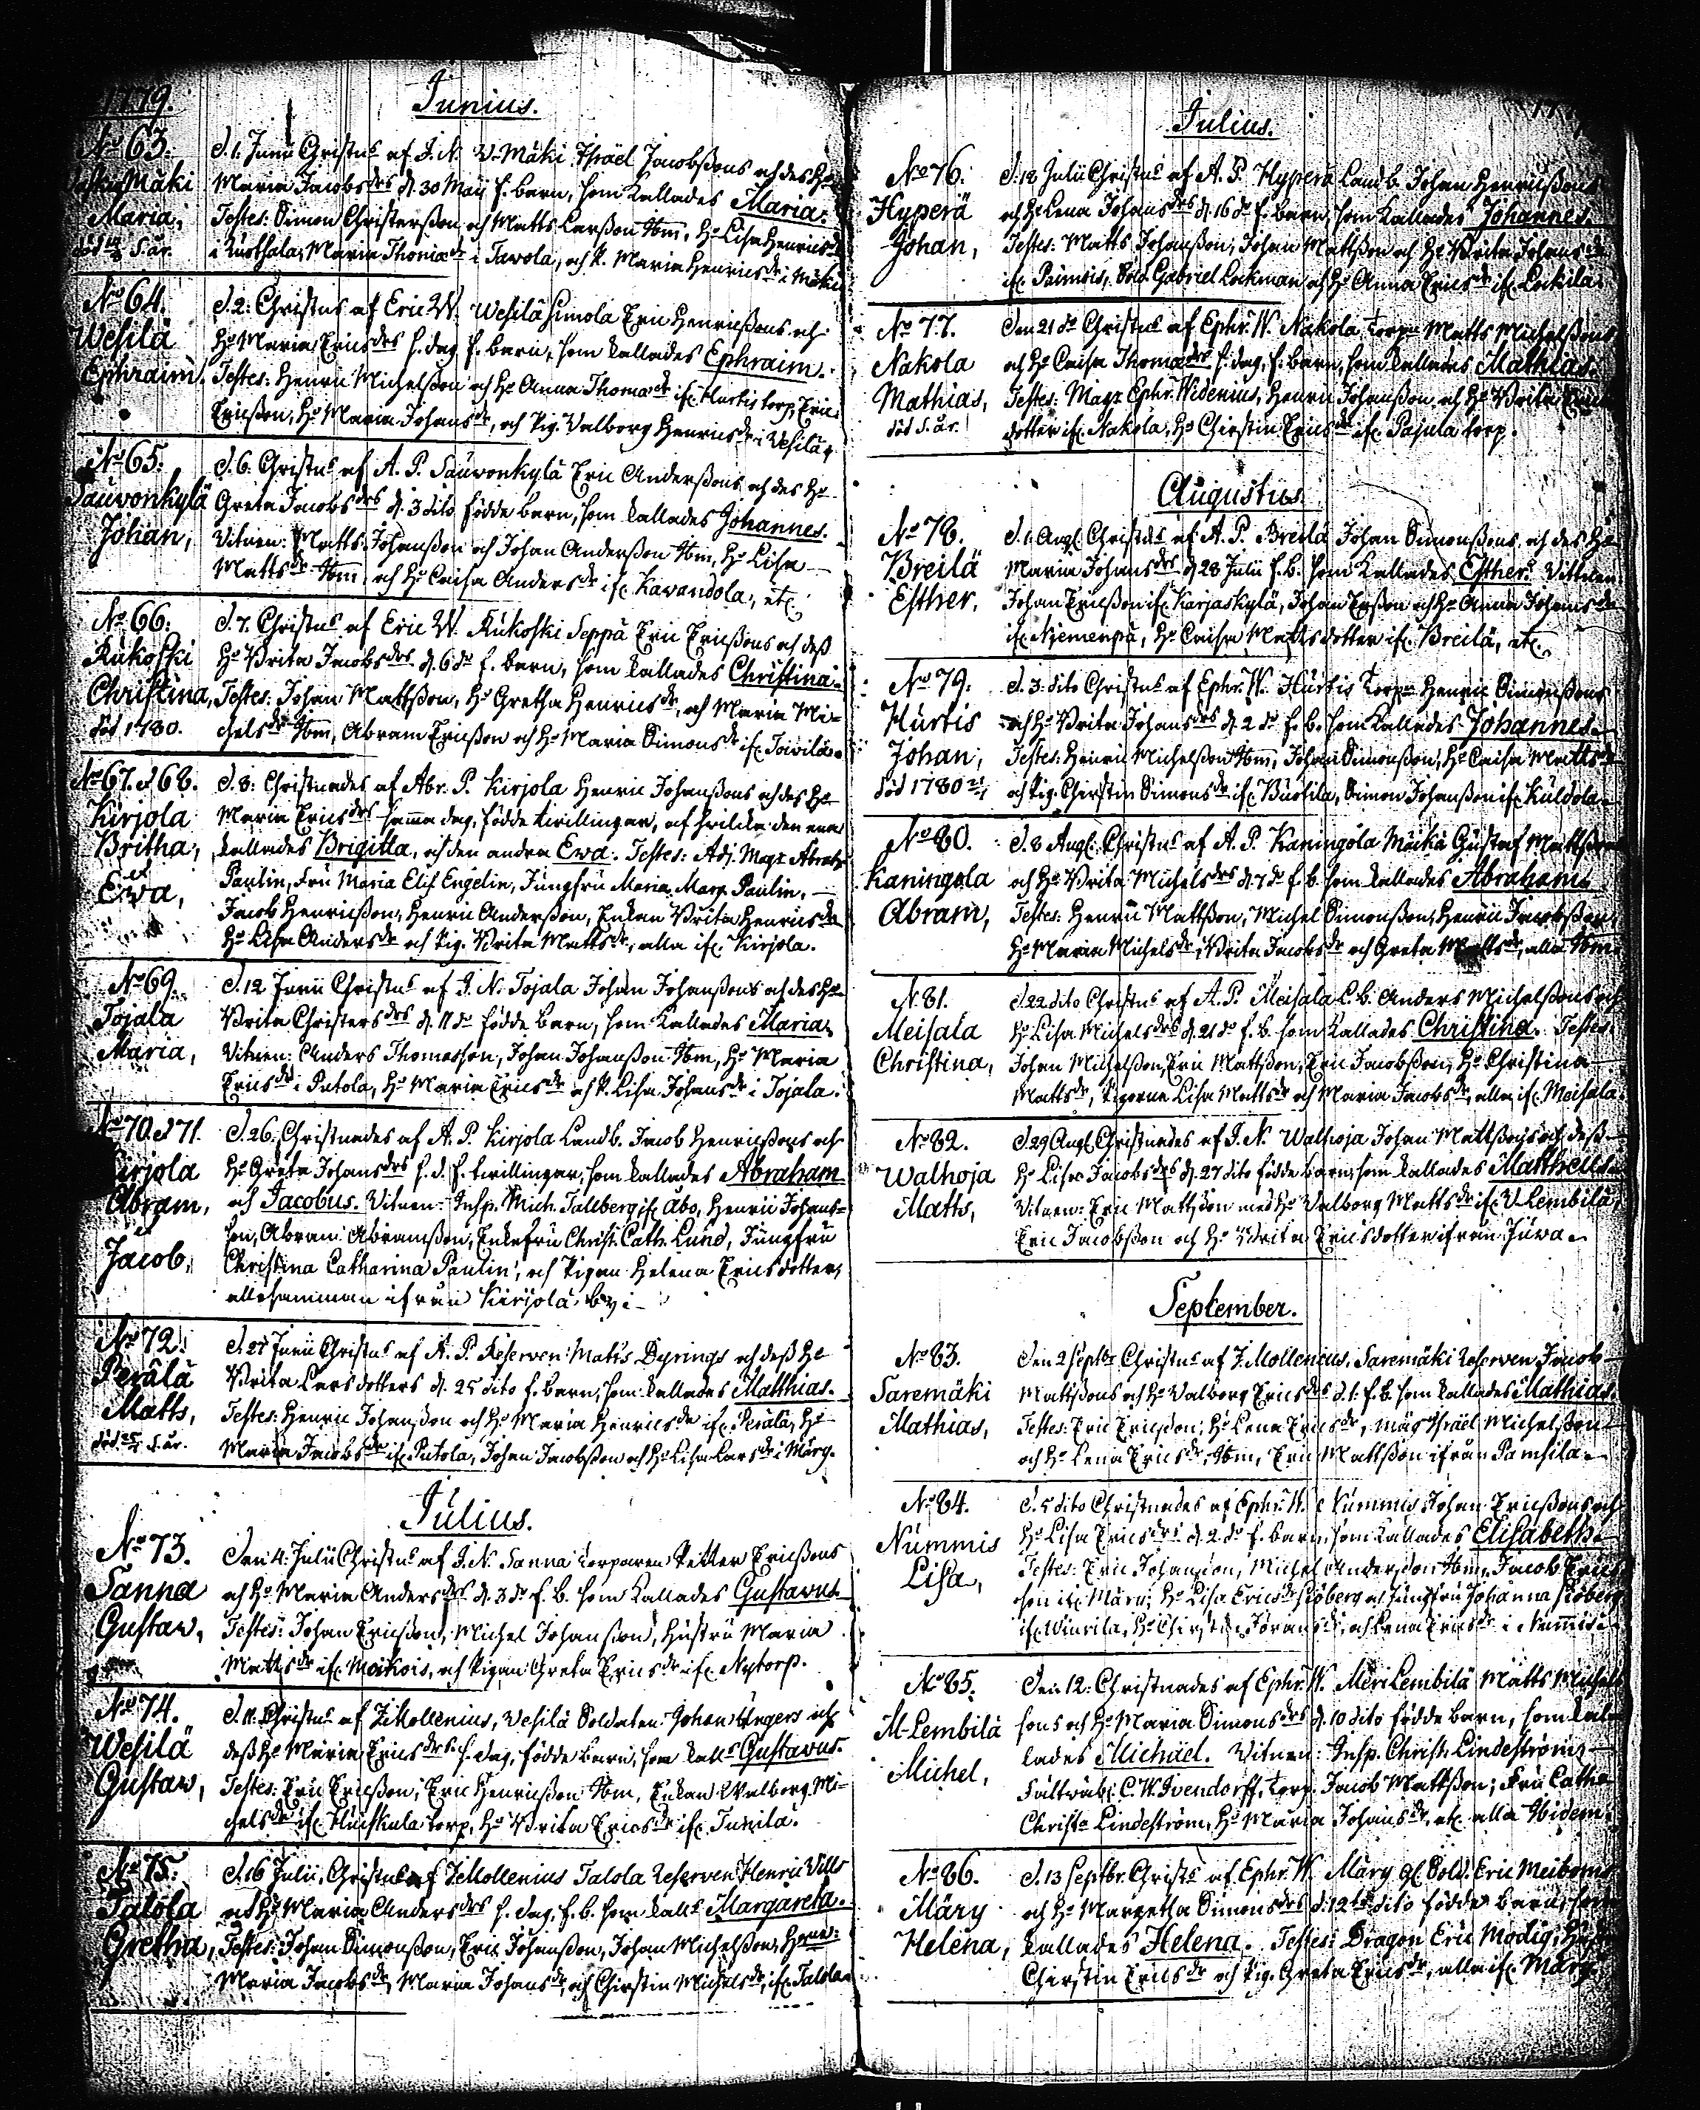 1779.
Junius.
No 63.
Mäki
Maria,
död s. år.
D. 1. Junii Christns af J. N. W-Mäki Israel Jacobßons och des Ho
Maria Jacobsdrs d. 30 Maji f. barn, som kallades Maria.
Testes: Simon Christersson och Matts Larßon Ibm, Ho Lisa Henricsdr
i Rusthala, Maria Thomædr i Tawola, och P. Maria Henricsdr i Mäki
No 64.
Wesilä
Ephraim.
D. 2. Christns af Eric W. Wesilä Simola Eric Henricßons och
Ho Maria Ericsdrs s. dag f. barn, som kallades Ephraim.
Testes: Henric Michelsson och Ho Anna Thomadr ifr. Hurtis torp, Eric
Ericßon, Ho Maria Johansdr, och Pig. Valborg Henricsdr i Wesilä.
No 65.
Sauvonkylä
Johan,
D. 6. Christns af A. P. Sauvonkylä Eric Anderßons och des Ho
Greta Jacobsdrs d. 3 dito födde barn, som kallades Johannes.
Vitnen: Matts Johanßon och Johan Anderßon Ibm, Ho Lisa
Mattsdr Ibm, och Ho Caisa Andersdr ifr. Kavandola, etc.
No 66.
Rukoski
Christina,
död 1780.
D. 7. Christns af Eric W. Rukoski Seppä Eric Ericßons och deß
Ho Brita Jacobsdrs d. 6 do f. barn, som kallades Christina.
Testes: Johan Mattßon, Ho Gretha Henricsdr, och Maria Mi-
chelsdr Ibm, Abram Ericßon och Ho Maria Simonsdr ifr. Toivilä.
No 67. & 68.
Kirjola
Britha,
et
Ewa,
D. 8. Christnades af Abr. P. Kirjola Henric Johanßons och des Ho
Maria Ericsdrs samma dag, födde tvillingar, af hvilcka den ena
kallades Brigitta, och den andra Ewa. Testes: Adj. Magr Abrah.
Paulin, Fru Maria Elis. Engelin, Jungfru Maria Marg. Paulin,
Jacob Henricßon, Henric Anderßon, Enkan Brita Henricsdr
Ho Lisa Andersdr och Pig. Brita Mattsdr, alla ifr. Kirjola.
No 69.
Tojala
Maria,
D. 12 Junii Christns af J. N. Tojala Johan Johanßons och des Ho
Brita Christersdrs d. 11 do födde barn, som kallades Maria.
Vitnen: Anders Thomasson, Johan Johanßon Ibm, Ho Maria
Ericsdr i Putola, Ho Maria Ericsdr och P. Lisa Johansdr i Tojala.
No 70. & 71.
Kirjola
Abram,
et
Jacob,
D. 26. Christnades af A. P. Kirjola Landb. Jacob Henricßons och
Ho Greta Johansdrs s. d. f. tvillingar, som kallades Abraham
och Jacobus. Vitnen: Insp. Mich. Tallberg ifr. Åbo, Henric Johans-
son, Abram Abramßon, Enkefru Christ. Cath. Lund, Jungfru
Christina Catharina Paulin, och Pigan Helena Ericsdotter,
allesamman ifrån Kirjola by.
No 72.
Perälä
Matts,
död s. år.
D. 27 Junii Christns af A. P. Reserven Matts Dyrings och deß Ho
Brita Larsdotters d. 25 dito f. barn, som kallades Matthias.
Testes: Henric Johanßon och Ho Maria Henricsdr ifr. Perälä, Ho
Maria Jacobsdr ifr. Putola, Johan Jacobßon och Ho Lisa Larsdr i Märy.
Julius.
No 73.
Sanna
Gustav,
Den 4. Julii Christns af J. N. Sanna Torparen Petter Ericßons
och Ho Maria Andersdrs d. 3 do f. b. som kallades Gustavus.
Testes: Johan Ericßon, Michel Johansson, Hustru Maria
Mattsdr ifr. Moikois, och Pigan Greta Ericsdr ifr. Nytorp.
No 74.
Wesilä
Gustav,
D. 11. Christns af Z. Mollenius, Wesilä Soldaten Johan Ungers och
deß Ho Maria Ericsdrs s. dag, födde barn, som kalls Gustavus.
Testes: Eric Ericßon, Eric Henricßon Ibm, Enkan Walborg Mi-
chelsdr ifr. Huiskula torp, Ho Brita Ericsdr ifr. Junila.
No 75.
Talola
Gretha,
D. 16 Julii, Christns af Z. Mollenius Talola Reserven Henric Vills
och Ho Maria Andersdrs s. dag, f. b. som kalls Margareta.
Testes: Johan Simonßon, Eric Johanßon, Johan Michelßon,
Maria Jacobsdr, Maria Johansdr, och Chirstin Michelsdr, ifr. Talola.
Julius.
No 76.
Hyperä
Johan,
D. 18 Julii Christns af A. P. Hyperä Landb. Johan Henricßons
och Ho Lena Johansdrs d. 16 do f. barn, som kallades Johannes.
Testes: Matts Johanßon, Johan Mattßon och Ho Brita Johansdr
ifr. Paimois, Sold. Gabriel Lockman och Ho Anna Ericsdr ifr. Lockila.
No 77.
Nakola
Mathias,
död s. år.
Den 21 do Christns af Ephr. W. Nakola Torpn Matts Michelßons
och Ho Caisa Thomædrs s. dag, f. barn, som kallades Mathias.
Testes: Magr Ephr. Widenius, Henric Johanßon och Ho Brita Erics
dotter ifr. Nakola, Ho Chirstin Ericsdr ifr. Pajula torp.
Augustus.
No 78.
Breilä
Esther.
D. 1. Aug. Christns af A. P. Breilä Johan Simonßons och des Ho
Maria Johansdrs d. 28 Julii f. b. som kallades Esther. Vittnen
Johan Ericßon ifr. Karjaskylä, Johan Erßon och Ho Anna Johansdr
ifr. Njemenpä, Ho Caisa Mattsdotter ifr. Breilä, etc.
No 79.
Hurtis
Johan,
död 1780
D. 3. dito Christns af Ephr. W. Hurtis Torpn Henric Simonßons
och Ho Brita Johansdrs d. 2 do f. b. som kallades Johannes.
Testes: Henric Michelßon Ibm, Johan Simonßon, Ho Caisa Mattsdr
och Pig. Chirstin Simonsdr ifr. Buotila, Simon Johanßon ifr. Kuldola.
No 80.
Kaningola
Abram,
D. 8 Aug. Christns af A. P. Kaningola Mäckä Gustaf Mattßons
och Ho Brita Michelsdrs d. 7 do f. b. som kallades Abraham.
Testes: Henric Mattßon, Michel Simonßon, Henric Jacobßon,
Ho Maria Michelsdr, Brita Jacobsdr och Greta Mattsdr, alla Ibm.
No 81.
Meisala
Christina,
D. 22 dito Christns af A. P. Meisala L. b. Anders Michelßons och
Ho Lisa Michelsdrs d. 21 do f. b. som kallades Christina. Testes:
Johan Michelßon, Eric Mattßon, Eric Jacobßon, Ho Christina
Mattsdr, Pigorna Lisa Mattsdr och Maria Jacobsdr, alla ifr. Meisala.
No 82.
Walhoja
Matts,
D. 29 Aug. Christnades af J. N. Walhoja Johan Mattßons och deß
Ho Lisa Jacobsdrs d. 27 dito födde barn, som kallades Mattheus.
Vitnen: Eric Mattßon med Ho Valborg Mattsdr ifr. V-Lembilä,
Eric Jacobßon och Ho Brita Ericsdotter ifrån Juva.
September.
No 83.
Saremäki
Mathias,
Den 2 Septbr Christns af Z. Mollenius, Saremäki Reserven Jacob
Mattßons och Ho Valborg Ericsdrs d. 1. f. b. som kallades Mathias.
Testes: Eric Ericßon, Ho Lena Ericsdr, måg Israel Michelsson
och Ho Lena Ericsdr, Ibm, Eric Mattßon ifrån Pamsila.
No 84.
Nummis
Lisa,
D. 5 dito Christnades af Ephr. W. Nummis Johan Ericßons och
Ho Lisa Ericsdrs d. 2. do f. barn, som kallades Elisabeth.
Testes: Eric Johansson, Michel Andersson Ibm, Jacob Erics
son ifr. Märy, Ho Lisa Ericsdr Siöberg och Jungfru Johanna Siöberg
ifr. Winrila, Ho Chirstin Göransdr, och Lena Ericsdr i Nummis.
No 85.
M-Lembilä
Michel,
Den 12. Christnades af Ephr. W. Meri Lembilä Matts Michels
sons och Ho Maria Simonsdrs d. 10 dito födde barn, som kal-
lades Michäel. Vitnen: Insp. Christ. Lindeström,
Fältwäb. C. W. Ivendorff, Torp. Jacob Mattßon, Fru Catha
Christa Lindeström, Ho Maria Johansdr, etc. alla Ibidem.
No 86.
Märy
Helena,
D. 13 Septbr. Christs af Ephr. W. Märy gl. Sold. Eric Meiboms
och Ho Margetha Simonsdrs d. 12 dito födde barn, som
kallades Helena. Testes: Dragon Eric Modig, Hustru
Chirstin Ericsdr och Pig. Greta Ericsdr, alla ifr. Märy.